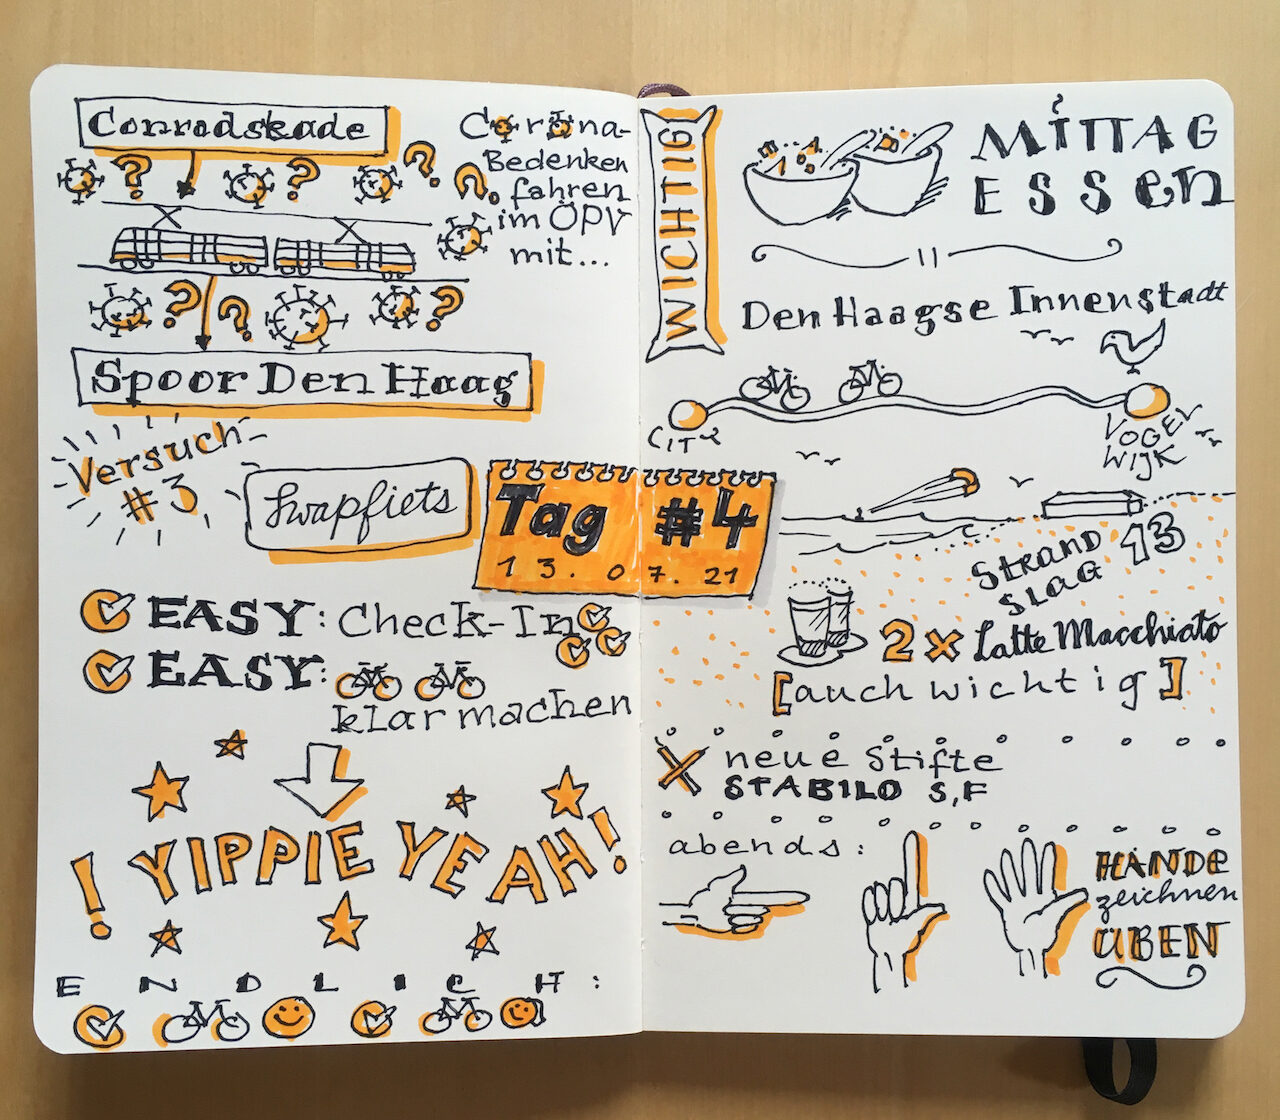 Conradskade
Corona-
Bedenken
fahren
im ÖPV
mit...
Spoor Den Haag
Versuch
#3
Swapfiets
Tag #4
13.07.21
EASY: Check-In
EASY:
klar machen
! YIPPIE YEAH!
ENDLICH:
WICHTIG
MITTAG
ESSEN
Den Haagse Innenstadt
CITY
VOGEL
WIJK
STRAND
SLAG 13
2x Latte Macchiato
[auch wichtig]
neue Stifte
STABILO S,F
abends:
HÄNDE
zeichnen
ÜBEN